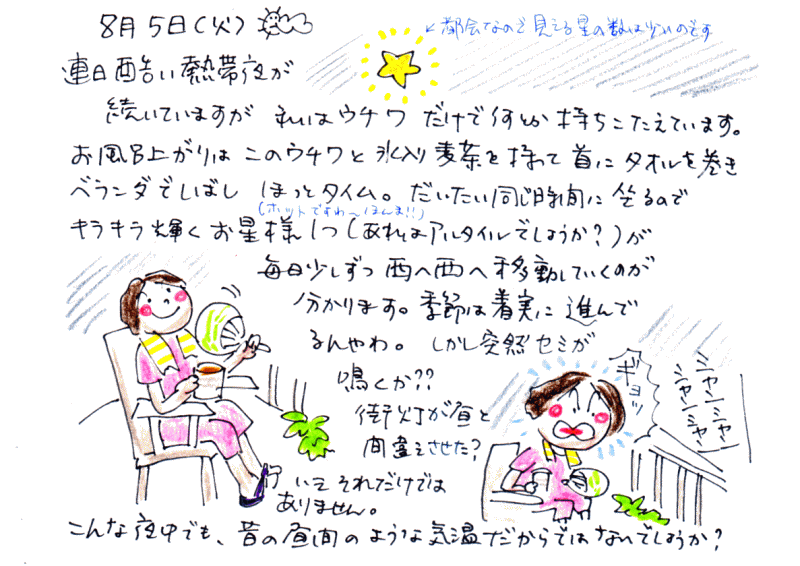 8月5日(火)
←都会なので見える星の数は少いのです
連日酷い熱帯夜が
続いていますが それはウチワだけで何とか持ちこたえています。
お風呂上がりは このウチワと氷入り麦茶を持って首にタオルを巻き
ベランダでしばし ほっとタイム。だいたい同じ時間に坐るので
(ホットですわ〜ほんま!!)
キラキラ輝くお星様1つ(あれはアルタイルでしょうか?)が
毎日少しずつ西へ西へ移動していくのが
分かります。季節は着実に進んで
るんやわ。しかし突然セミが
鳴くか??
街灯が昼と
間違えさせた?
いえそれだけでは
ありません。
ギョッ
シャンシャン
シャンシャン
こんな夜中でも、昔の昼間のような気温だからではないでしょうか?